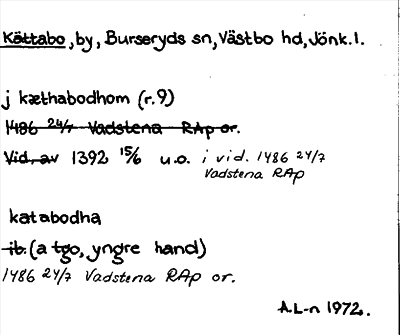 Kättabo, by, Burseryds sn, Västbo hd, Jönk. l.
j kæthabodhom (r. 9)
1486 24/7 Vadstena RAp or.
Vid. av 1392 15/6 u.o. i vid. 1486 24/7
Vadstena RAp
katabodha
ib. (a tgo, yngre hand)
1486 24/7 Vadstena RAp or.
A.L-n 1972.